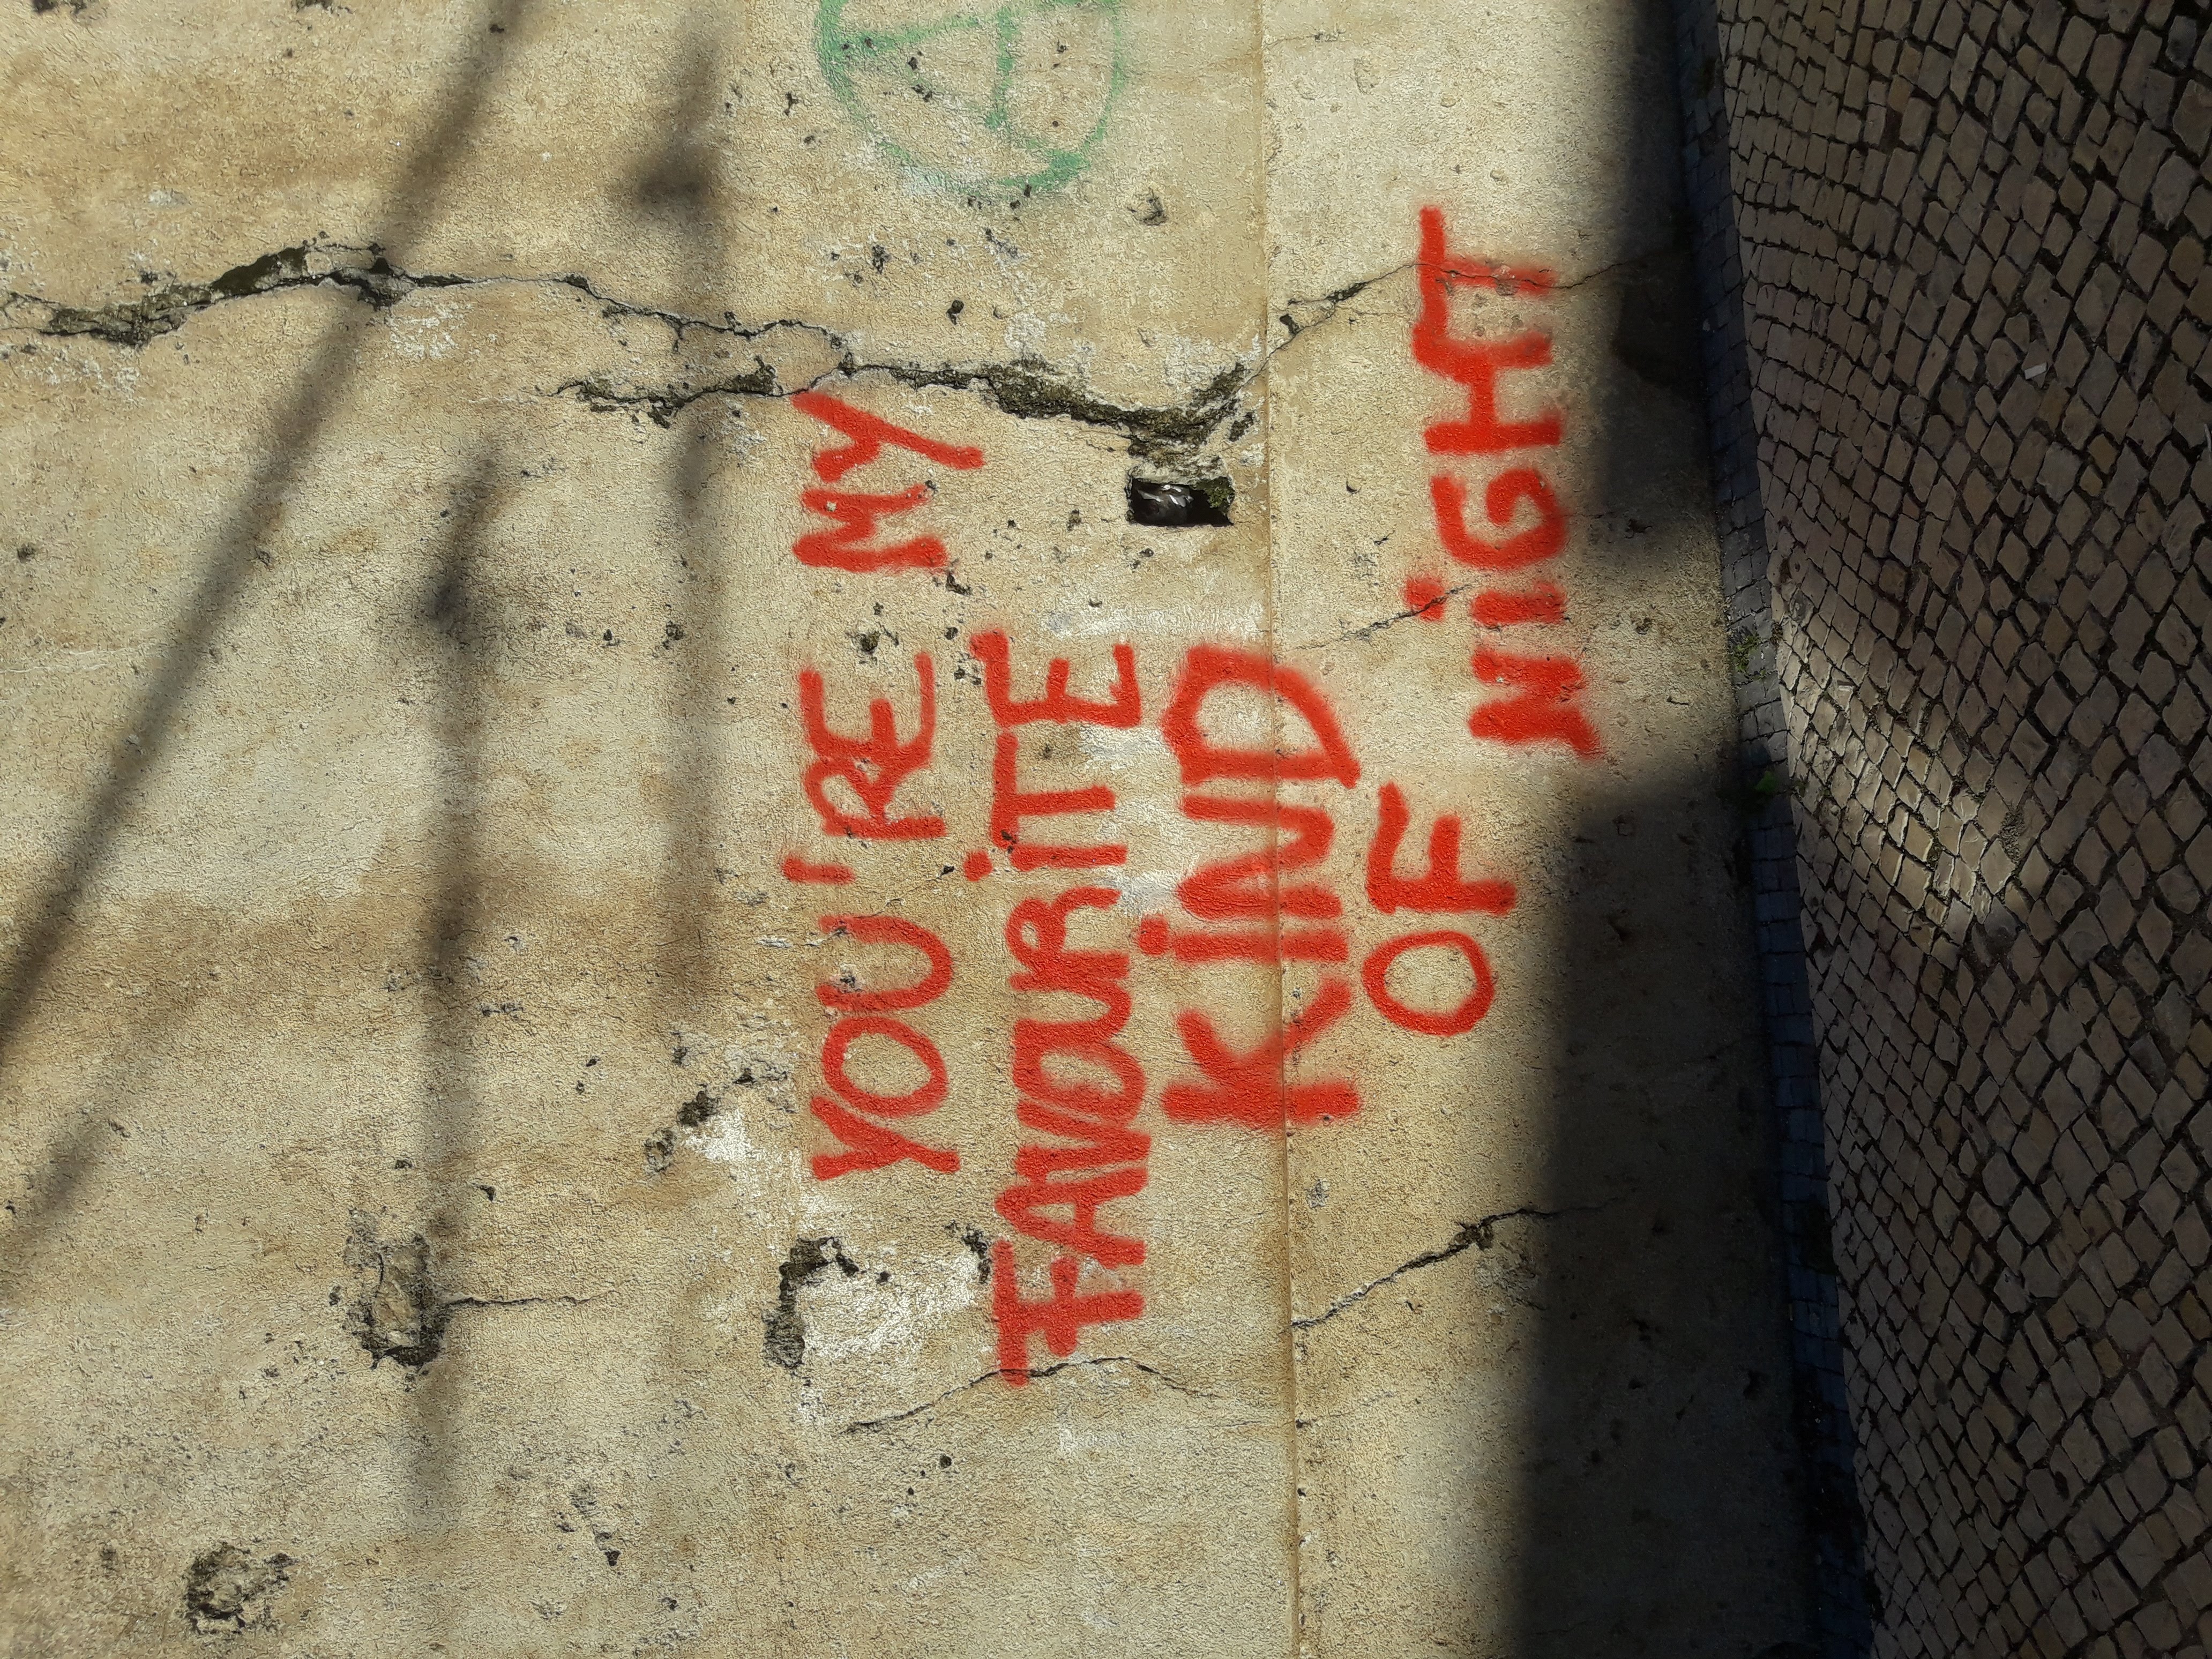 YOU'RE MY
FAVOURiTE
KiND
OF
NiGHT
A